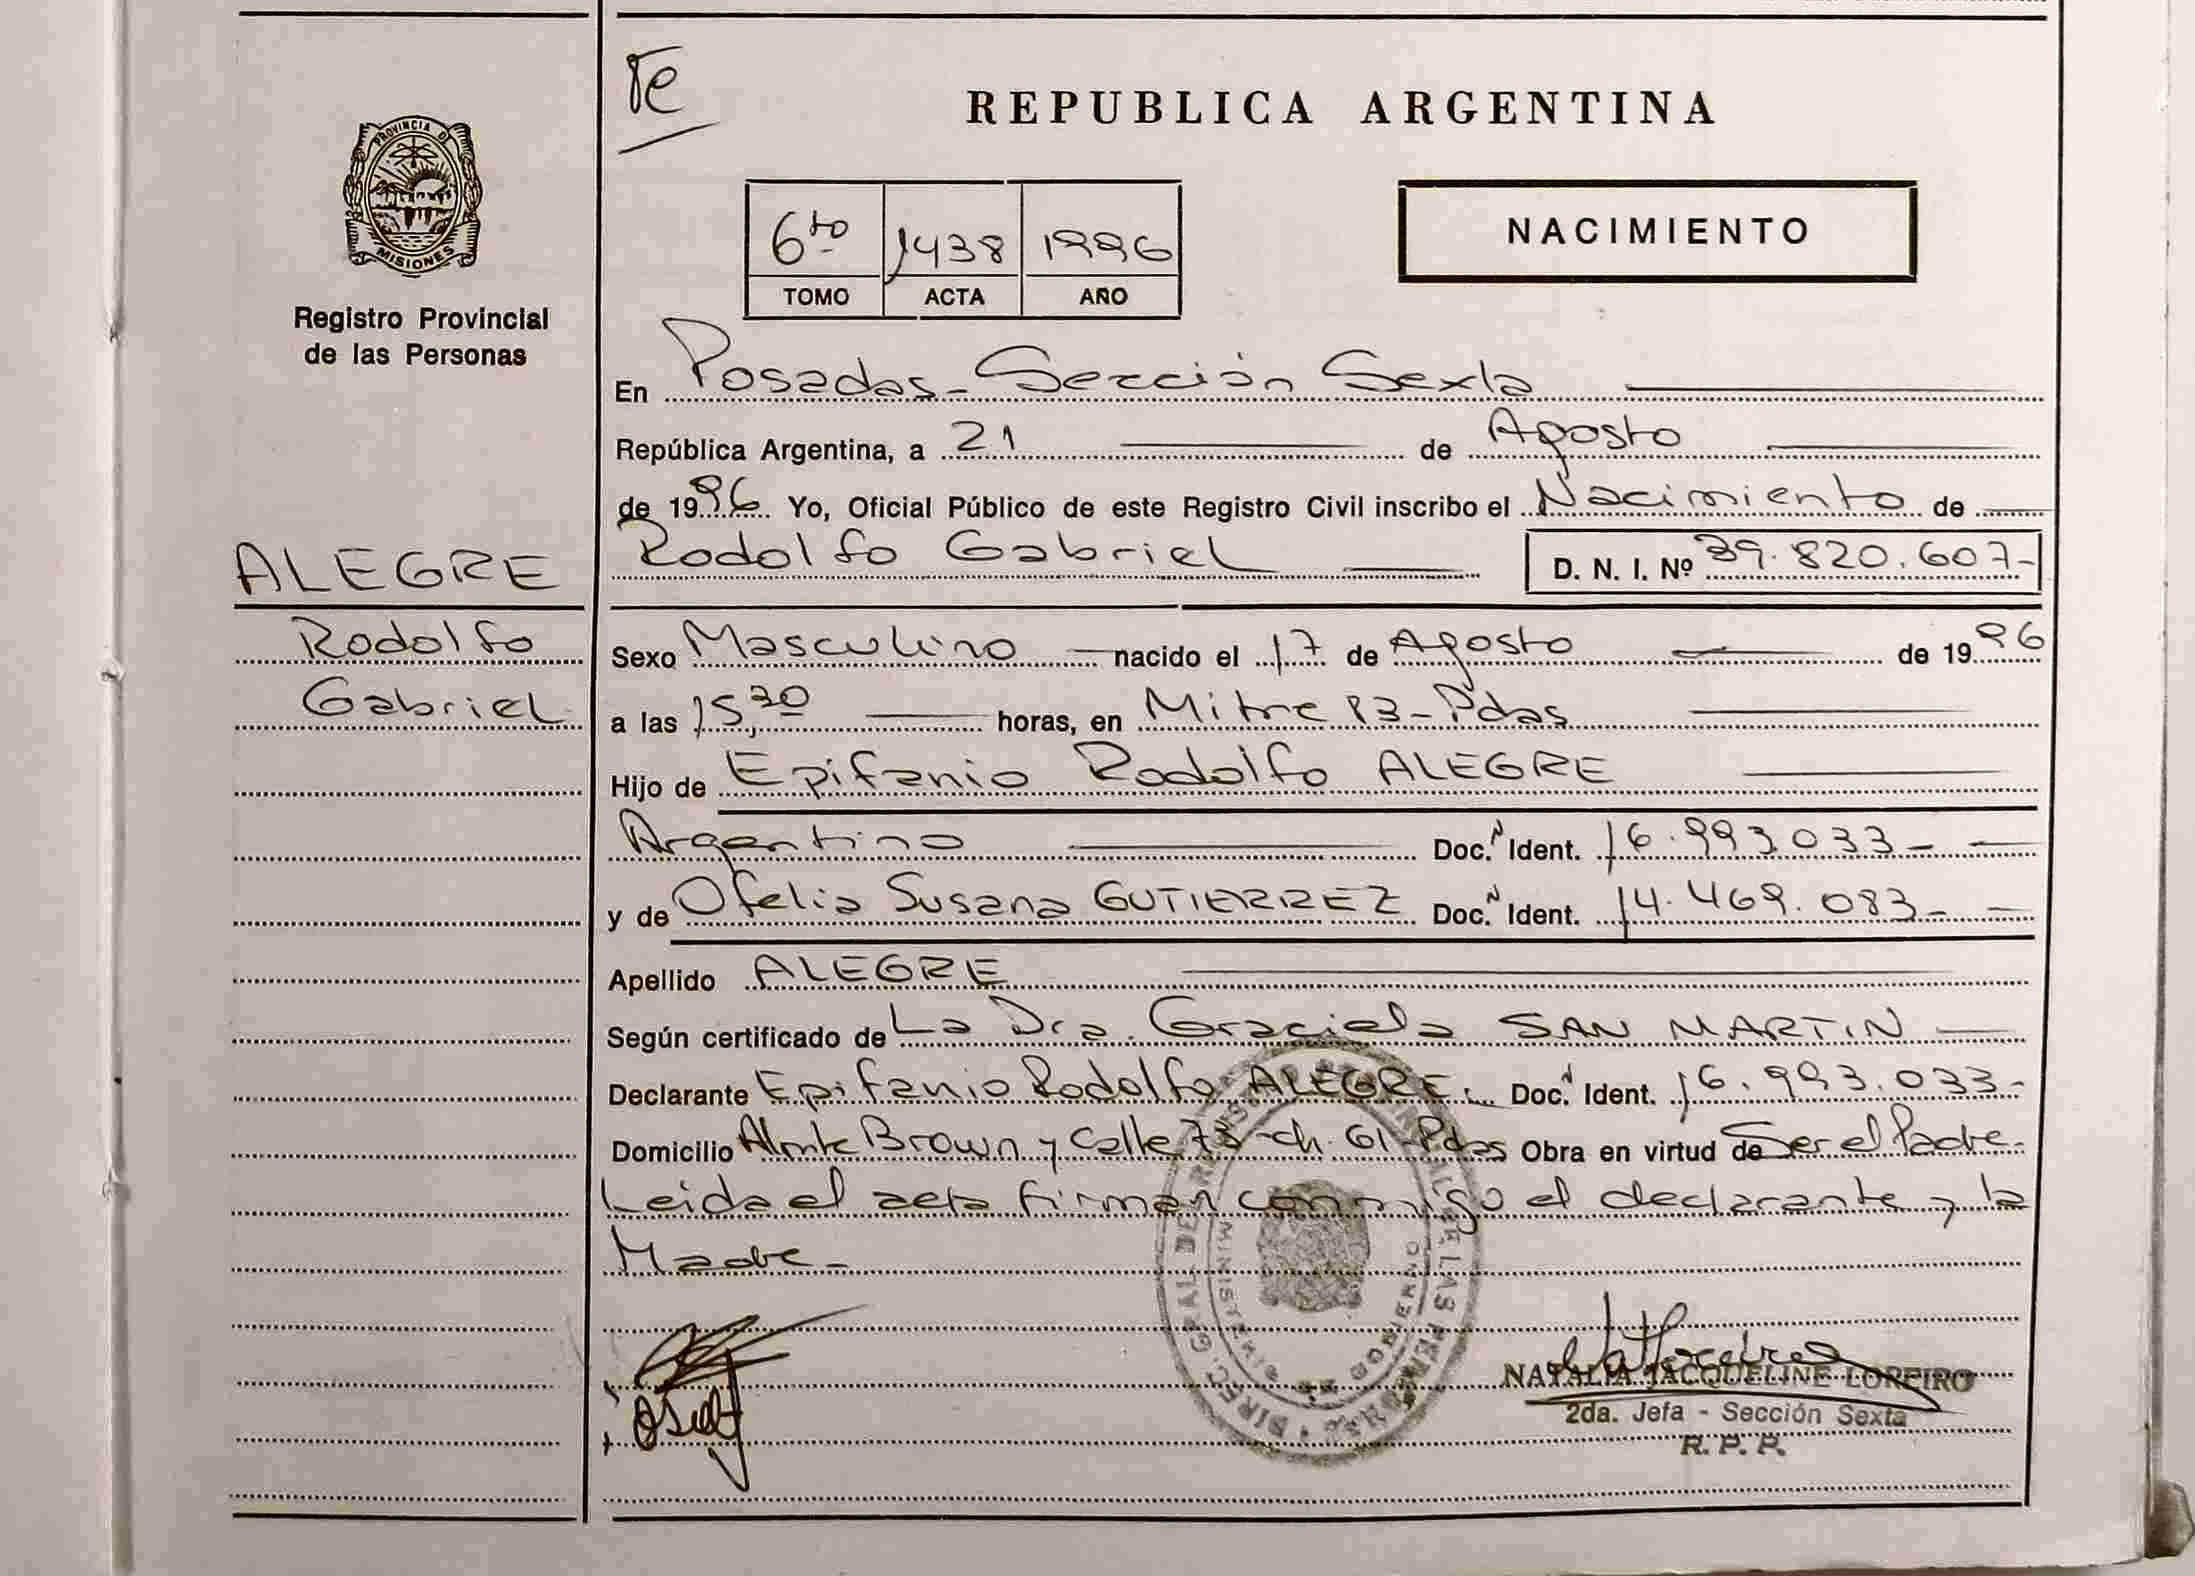 Te
REPUBLICA ARGENTINA
PROVINCIA DE
MISIONES
Registro Provincial
de las Personas
6to 1438 1996
TOMO ACTA AÑO
NACIMIENTO
En Posadas - Sección Sexta
República Argentina, a 21 de Agosto
de 1996 Yo, Oficial Público de este Registro Civil inscribo el Nacimiento de
Rodolfo Gabriel D. N. I. Nº 39.820.607-
ALEGRE
Rodolfo
Gabriel
Sexo Masculino nacido el 17 de Agosto de 1996
a las 15,30 horas, en Mitre 83 - Pdas
Hijo de Epifanio Rodolfo ALEGRE
Argentino Doc. N Ident. 16.993.033-
y de Ofelia Susana GUTIERREZ Doc. N Ident. 14.469.083-
Apellido ALEGRE
Según certificado de La Dra. Graciela SAN MARTIN
Declarante Epifanio Rodolfo ALEGRE. Doc. Ident. 16.993.033-
Domicilio Almte Brown y Calle 73 - ch. 61 Pdas Obra en virtud de Ser el Padre.
Leida el acta firman conmigo el declarante y la
Madre -
DIREC. GRAL DE LAS
MINISTERIO DE GOBIERNO
NATALIA JACQUELINE LOREIRO
2da. Jefa - Sección Sexta
R. P. P.